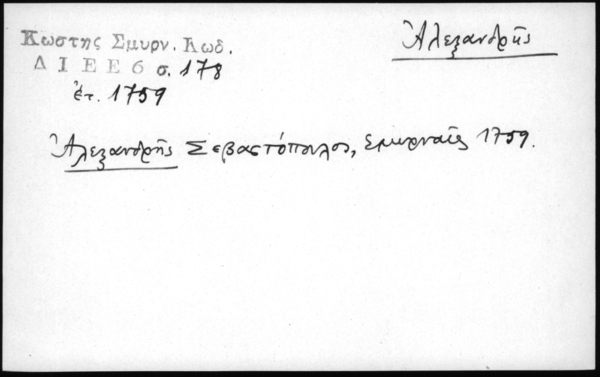 Ἀλεξανδρῆς
Κωστης Σμυρν. Κωδ.
Δ Ι Ε Ε 6 σ. 178
ἐτ. 1759
Ἀλεξανδρῆς Σεβαστόπουλος, Σμυρναῖος 1759.